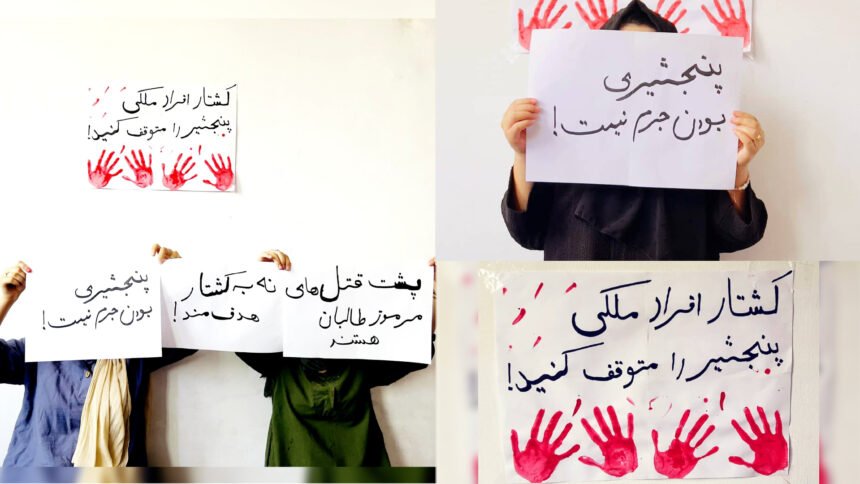 کشتار افراد ملکی
پنجشیر را متوقف کنید!
پنجشیری
بودن جرم نیست!
نه به کشتار
هدف مند!
پشت قتل‌های
مرموز طالبان
هستند
پنجشیری
بودن جرم نیست!
کشتار افراد ملکی
پنجشیر را متوقف کنید!